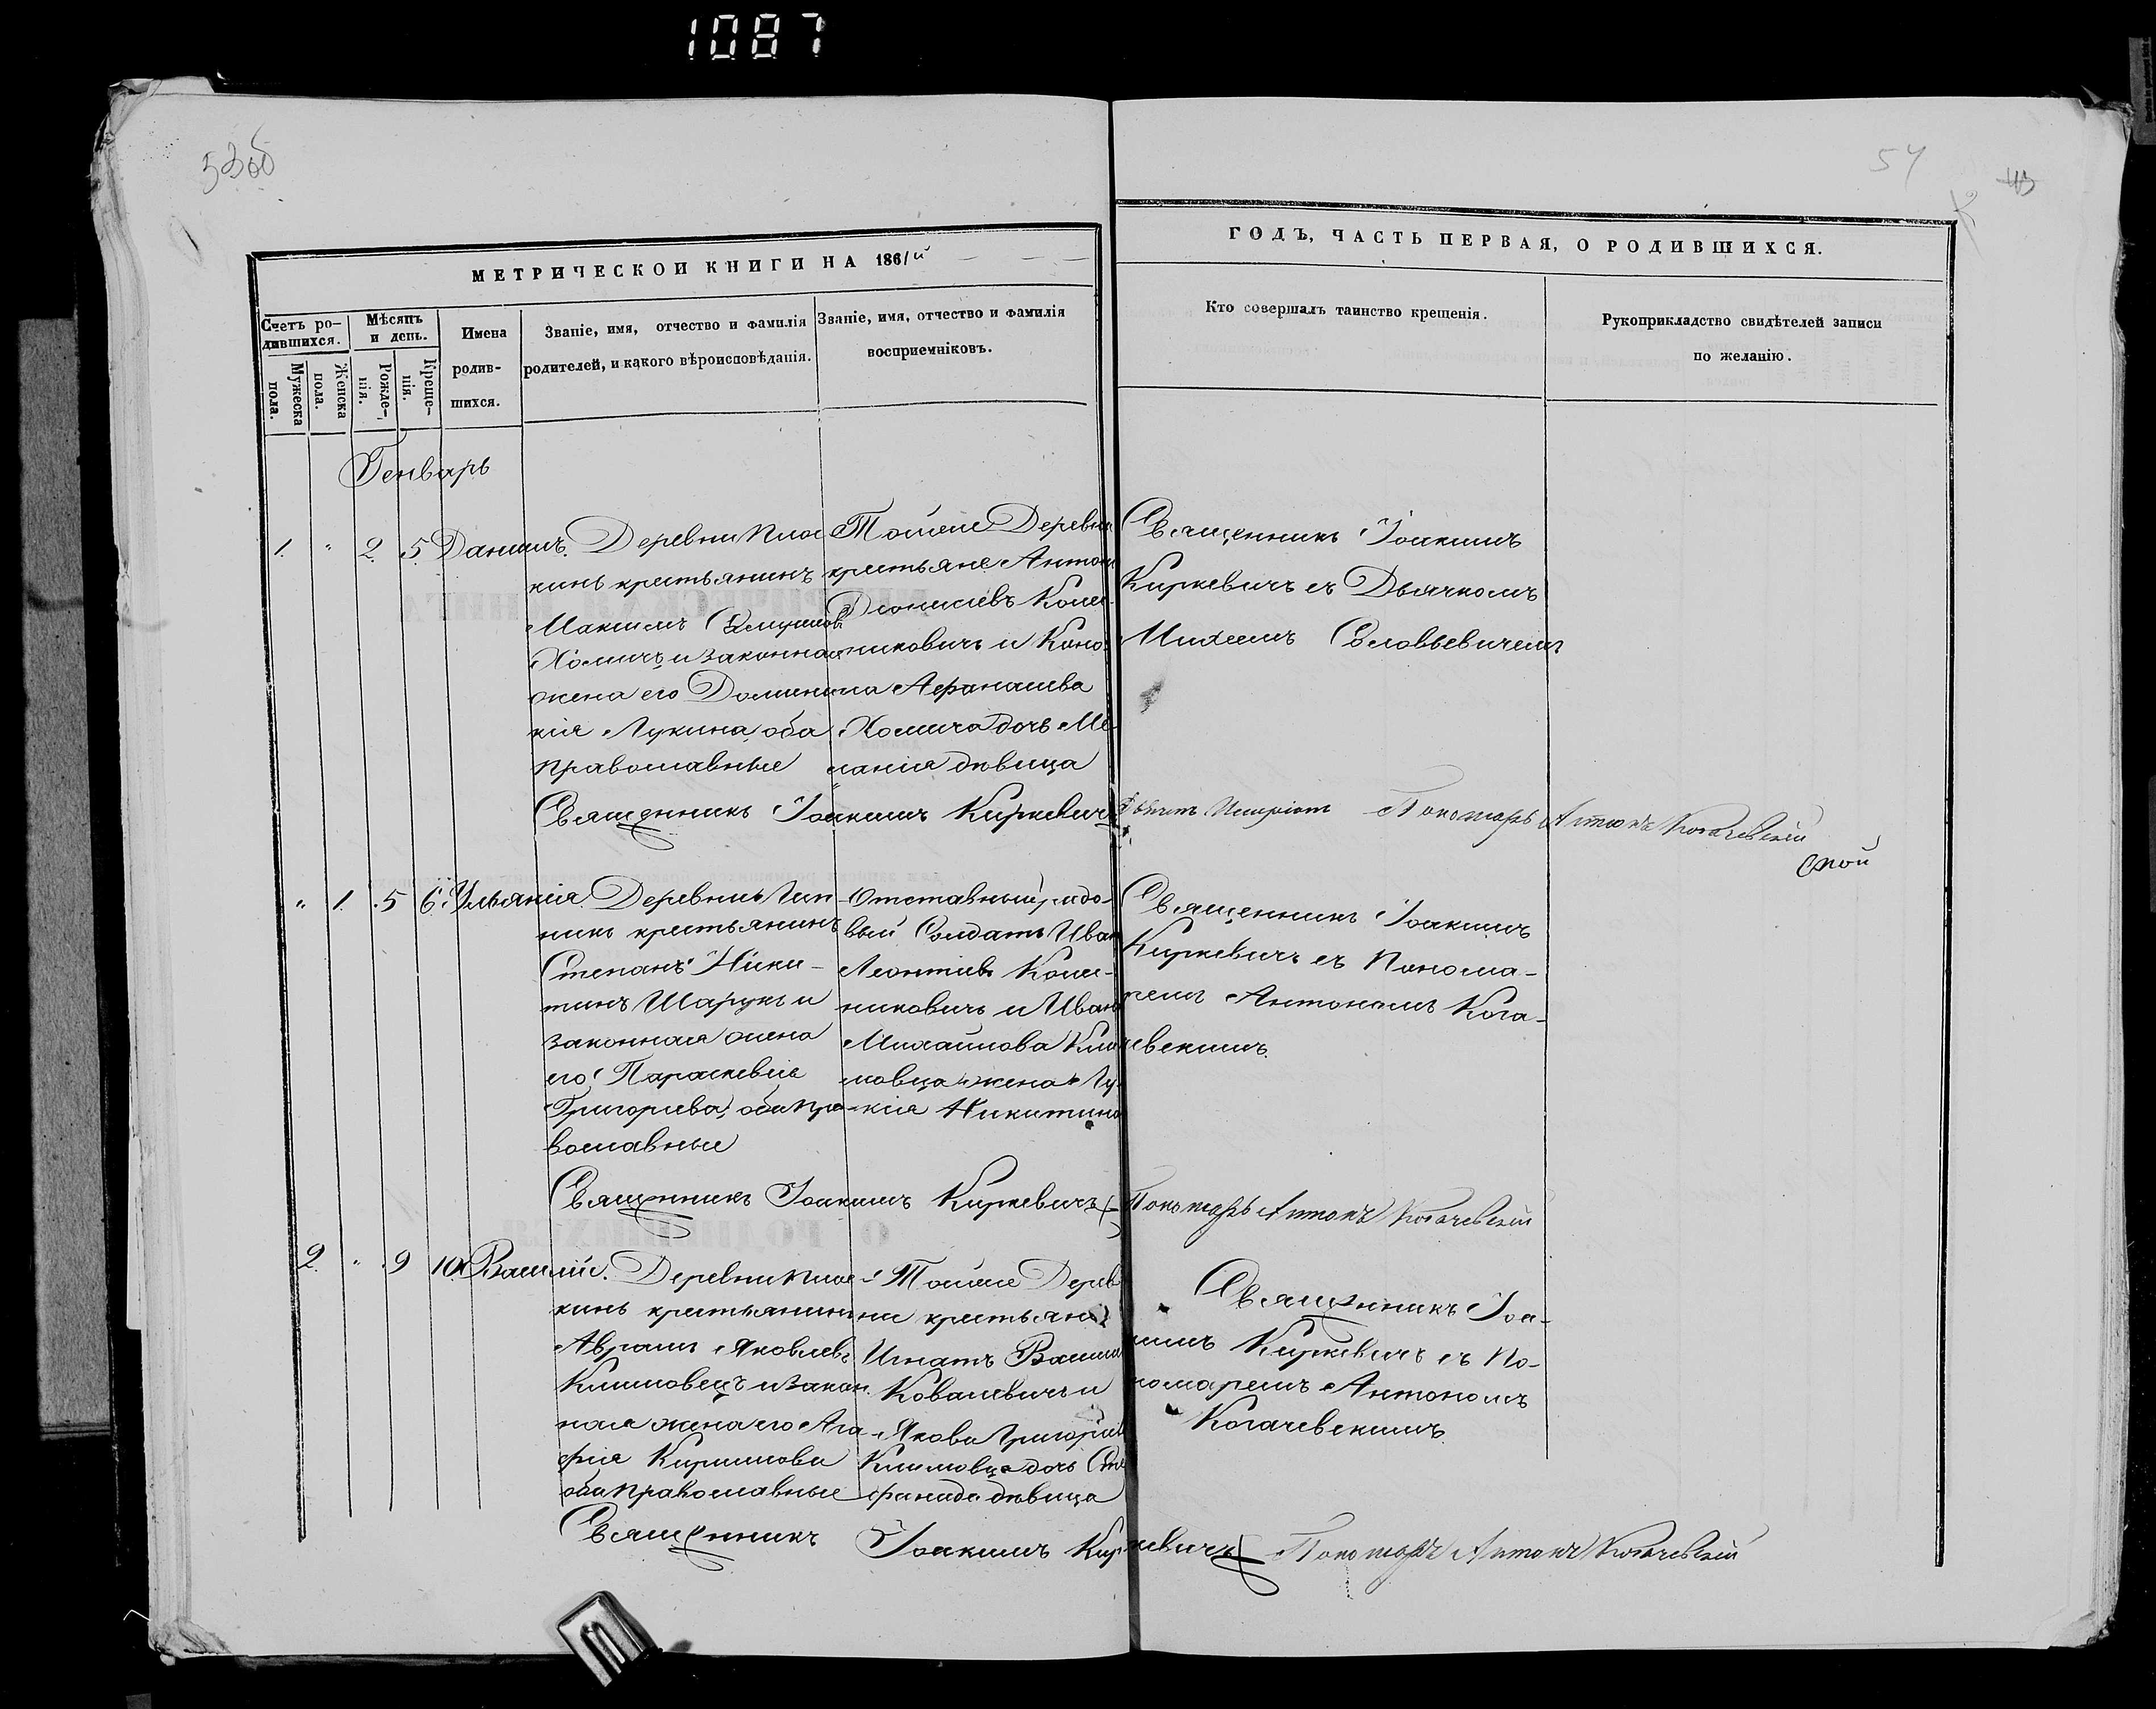 1087
53об
54
МЕТРИЧЕСКОЙ КНИГИ НА 1861й
ГОДЪ, ЧАСТЬ ПЕРВАЯ, О РОДИВШИХСЯ.
Счетъ ро-
дившихся.
Мужеска
пола.
Женска
пола.
Мѣсяцъ
и день.
Рожде-
нія.
Креще-
нія.
Имена
родив-
шихся.
Званіе, имя, отчество и фамилія
родителей, и какого вѣроисповѣданія.
Званіе, имя, отчество и фамилія
восприемніковъ.
Кто совершалъ таинство крещенія.
Рукоприкладство свидѣтелей записи
по желанію.
Генварь
1. " 2. 5. Даніилъ.
Деревни Плос
кинь крестьянинъ
Максимъ
Хомичъ и законная
жена его Домини
кія Лукина, оба
православные
Тойже Деревни
крестьяне Антонъ
Діонисіевъ Колес
никовичъ и Коно
на Афанасіева
Хомича дочь Ме
ланія дѣвица
Священникъ Іоакимъ
Киркевичъ съ Дьячкомъ
Михеемъ Соловьевичемъ
Священникъ Іоакимъ Киркевичъ
Пономарь Антонъ Когачевскій
" 1. 5 6. Ульянія.
Деревни Лип
никъ крестьянинъ
Степанъ Ники-
тинъ Шарукъ и
законная жена
его Параскевія
Григорьева, оба пра-
вославные
Отставный рядо-
вый Солдатъ Иванъ
Леонтіевъ Колес-
никовичъ и Ивана
Михайлова Кли
мовца жена Лу
кія Никитина
Священникъ Іоакимъ
Киркевичъ съ Понома-
ремъ Антономъ Кога-
чевскимъ.
Священникъ Іоакимъ Киркевичъ
Пономарь Антонъ Когачевскій
2. " 9 10. Василій.
Деревни Плос-
кинь крестьянинъ
Аврамъ Яковлевъ
Климовецъ и закон
ная жена его Ага
фія Кириллова
оба православные
Тойже Дерев
ни крестьяне
Игнатъ Васильевъ
Ковалевичъ и
Якова Григорьева
Климовца дочь Сте
фанида дѣвица
Священникъ Іоа-
кимъ Киркевичъ съ По-
номаремъ Антономъ
Когачевскимъ
Священникъ Іоакимъ Киркевичъ
Пономарь Антонъ Когачевскій